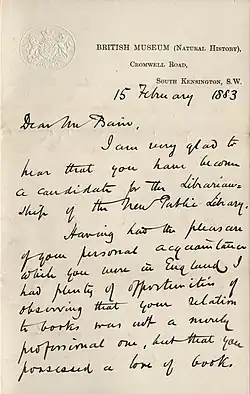 BRITISH MUSEUM (NATURAL HISTORY),
CROMWELL ROAD,
SOUTH KENSINGTON, S.W.
15 February 1883
Dear Mr Bain,
I am very glad to
hear that you have become
a candidate for the Librarian-
ship of the New Public Library.
Having had the pleasure
of your personal acquaintance
while you were in England I
had plenty of opportunities of
observing that your relation
to books was not a merely
professional one, but that you
possessed a love of books